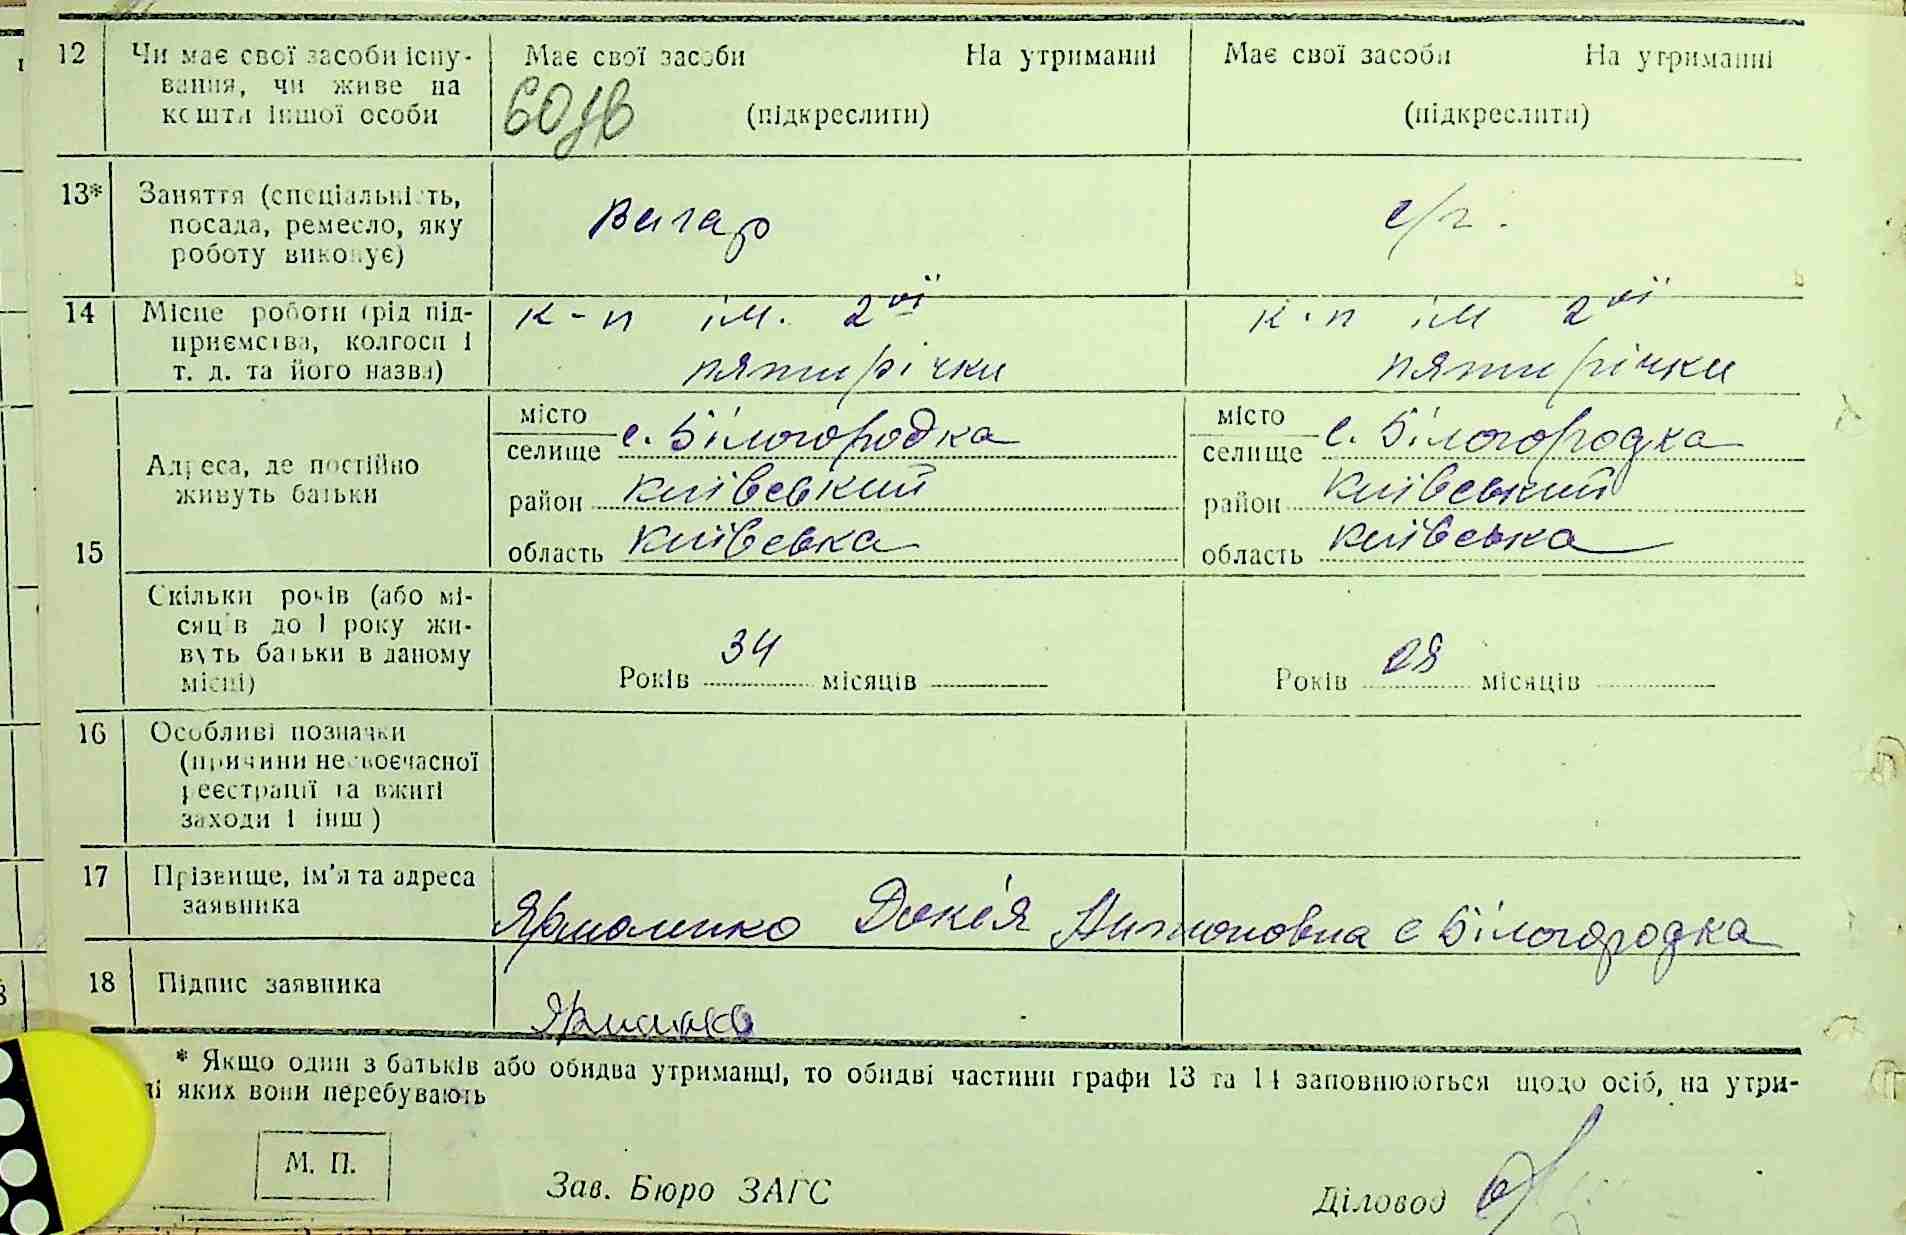 12 Чи має свої засоби існу- Має свої засоби На утриманні Має свої засоби На утриманні
вання, чи живе на
кошти іншої особи (підкреслити) (підкреслити)
13* Заняття (спеціальність,
посада, ремесло, яку Вагар с/г.
роботу виконує)
14 Місце роботи (рід під- к-п ім. 2ої к-п ім 2ої
приємства, колгосп і
т. д. та його назва) пятирічки пятирічки
місто місто
с. Білогородка с. Білогородка
селище селище
Адреса, де постійно
живуть батьки район Київський район Київський
15 область Київська область Київська
Скільки років (або мі-
сяців до 1 року жи-
вуть батьки в даному
місці) Років 34 місяців Років 28 місяців
16 Особливі позначки
(причини несвоєчасної
реєстрації та вжиті
заходи і інш)
17 Прізвище, ім'я та адреса
заявника Ярмоленко Докія Антоновна с Білогородка
18 Підпис заявника
* Якщо один з батьків або обидва утриманці, то обидві частини графи 13 та 14 заповнюються щодо осіб, на утри-
ні яких вони перебувають
М. П.
Зав. Бюро ЗАГС Діловод